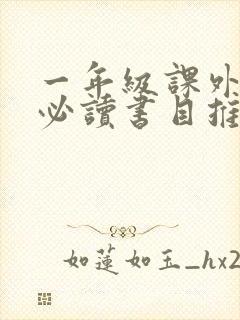 一年級課外
必讀書目推
如蓮如玉_hx2